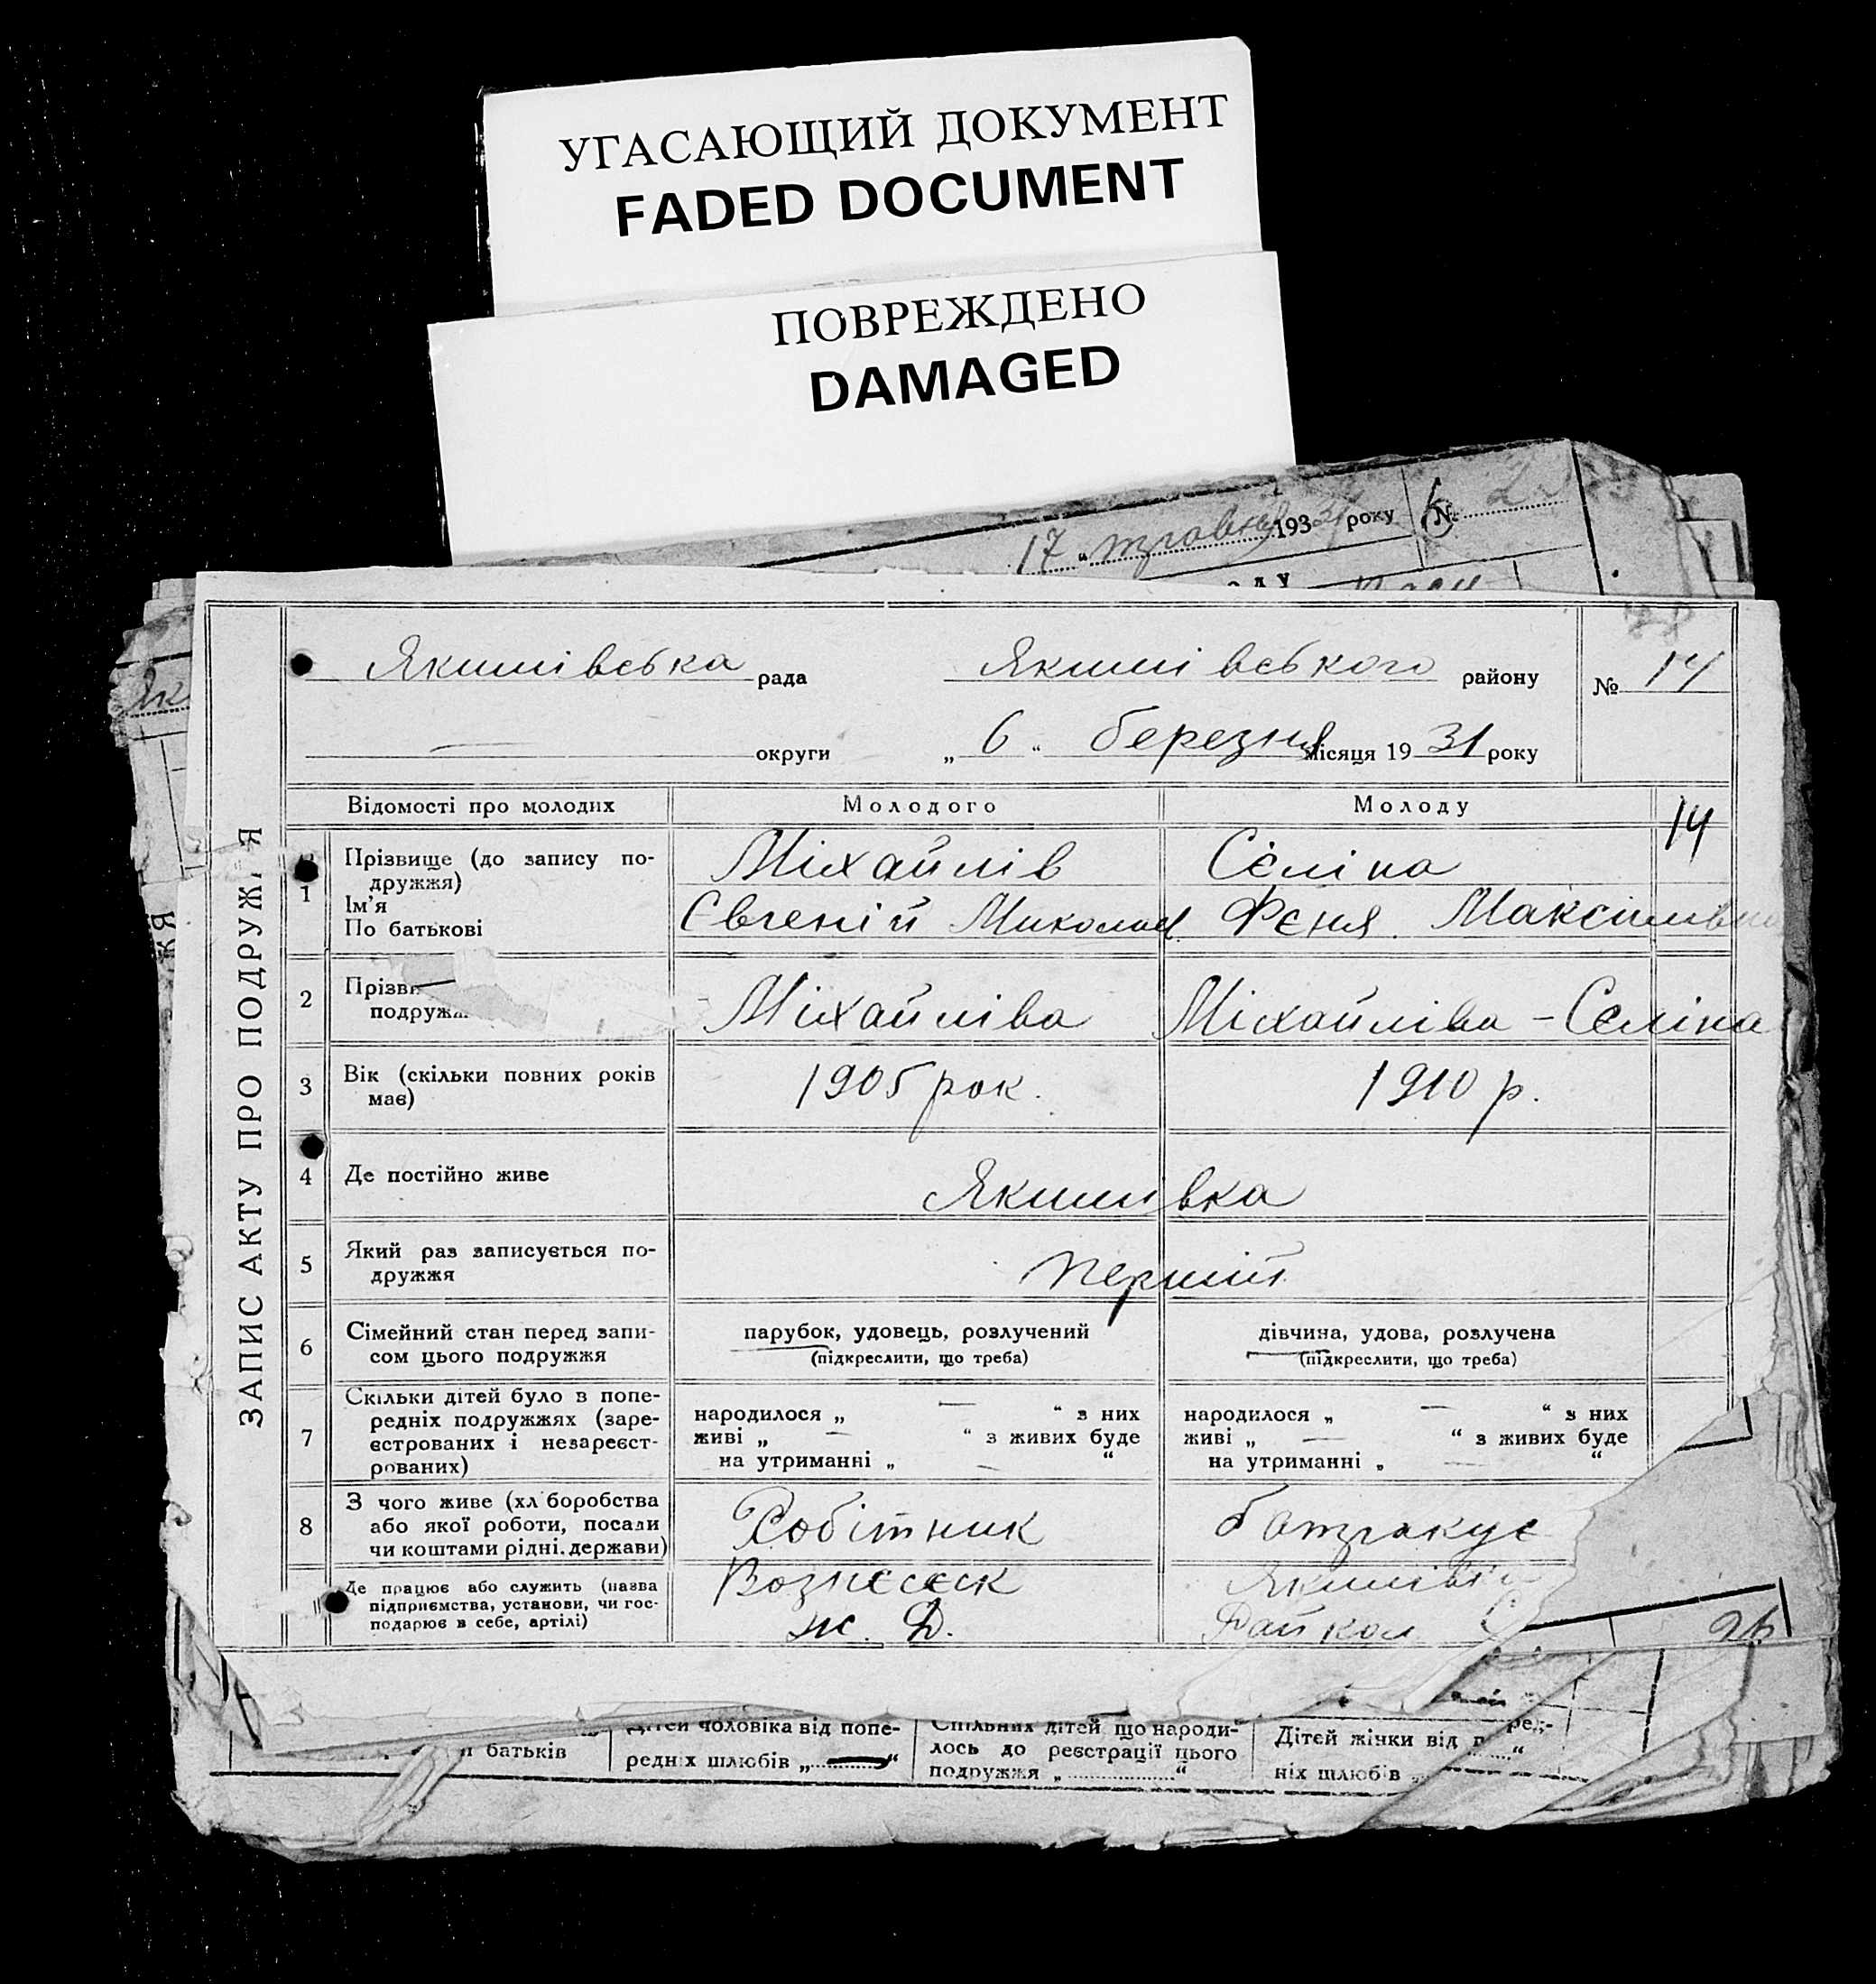 УГАСАЮЩИЙ ДОКУМЕНТ
FADED DOCUMENT
ПОВРЕЖДЕНО
DAMAGED
17 „ травня 193 року №
ЗАПИС АКТУ ПРО ПОДРУЖ Я
Якимівська рада Якимівського району № 14
— округи „ 6 “ березня місяця 19 31 року
Відомості про молодих Молодого Молоду
14
1 Прізвище (до запису по-
дружжя)
Ім'я
По батькові
Міхайлів Сєліна
Євгеній Миколай Фєня Максимівна
2 Прізви
подруж
Міхайліва Міхайліва - Сєліна
3 Вік (скільки повних років
має)
1905 рок. 1910 р.
4 Де постійно живе Якимівка
5 Який раз записується по-
дружжя
перший
6 Сімейний стан перед запи-
сом цього подружжя
парубок, удовець, розлучений дівчина, удова, розлучена
(підкреслити, що треба) (підкреслити, що треба)
7 Скільки дітей було в попе-
редніх подружжях (заре-
єстрованих і незареєст-
рованих)
народилося „ — “ з них народилося „ — “ з них
живі „ — “ з живих буде живі „ — “ з живих буде
на утриманні „ — “ на утриманні „ — “
8 З чого живе (хл боробства
або якої роботи, посади
чи коштами рідні. держави)
Робітник батракує
Де працює або служить (назва
підприємства, установи, чи гос-
подарює в себе, артілі)
Вознесеск Якимівка
ж. Д. Райкол
26
батьків
Дітей чоловіка від попе-
редніх шлюбів „ — “
Спільних дітей що народи-
лось до реєстрації цього
подружжя „ “
Дітей жінки від
ніх шлюбів „